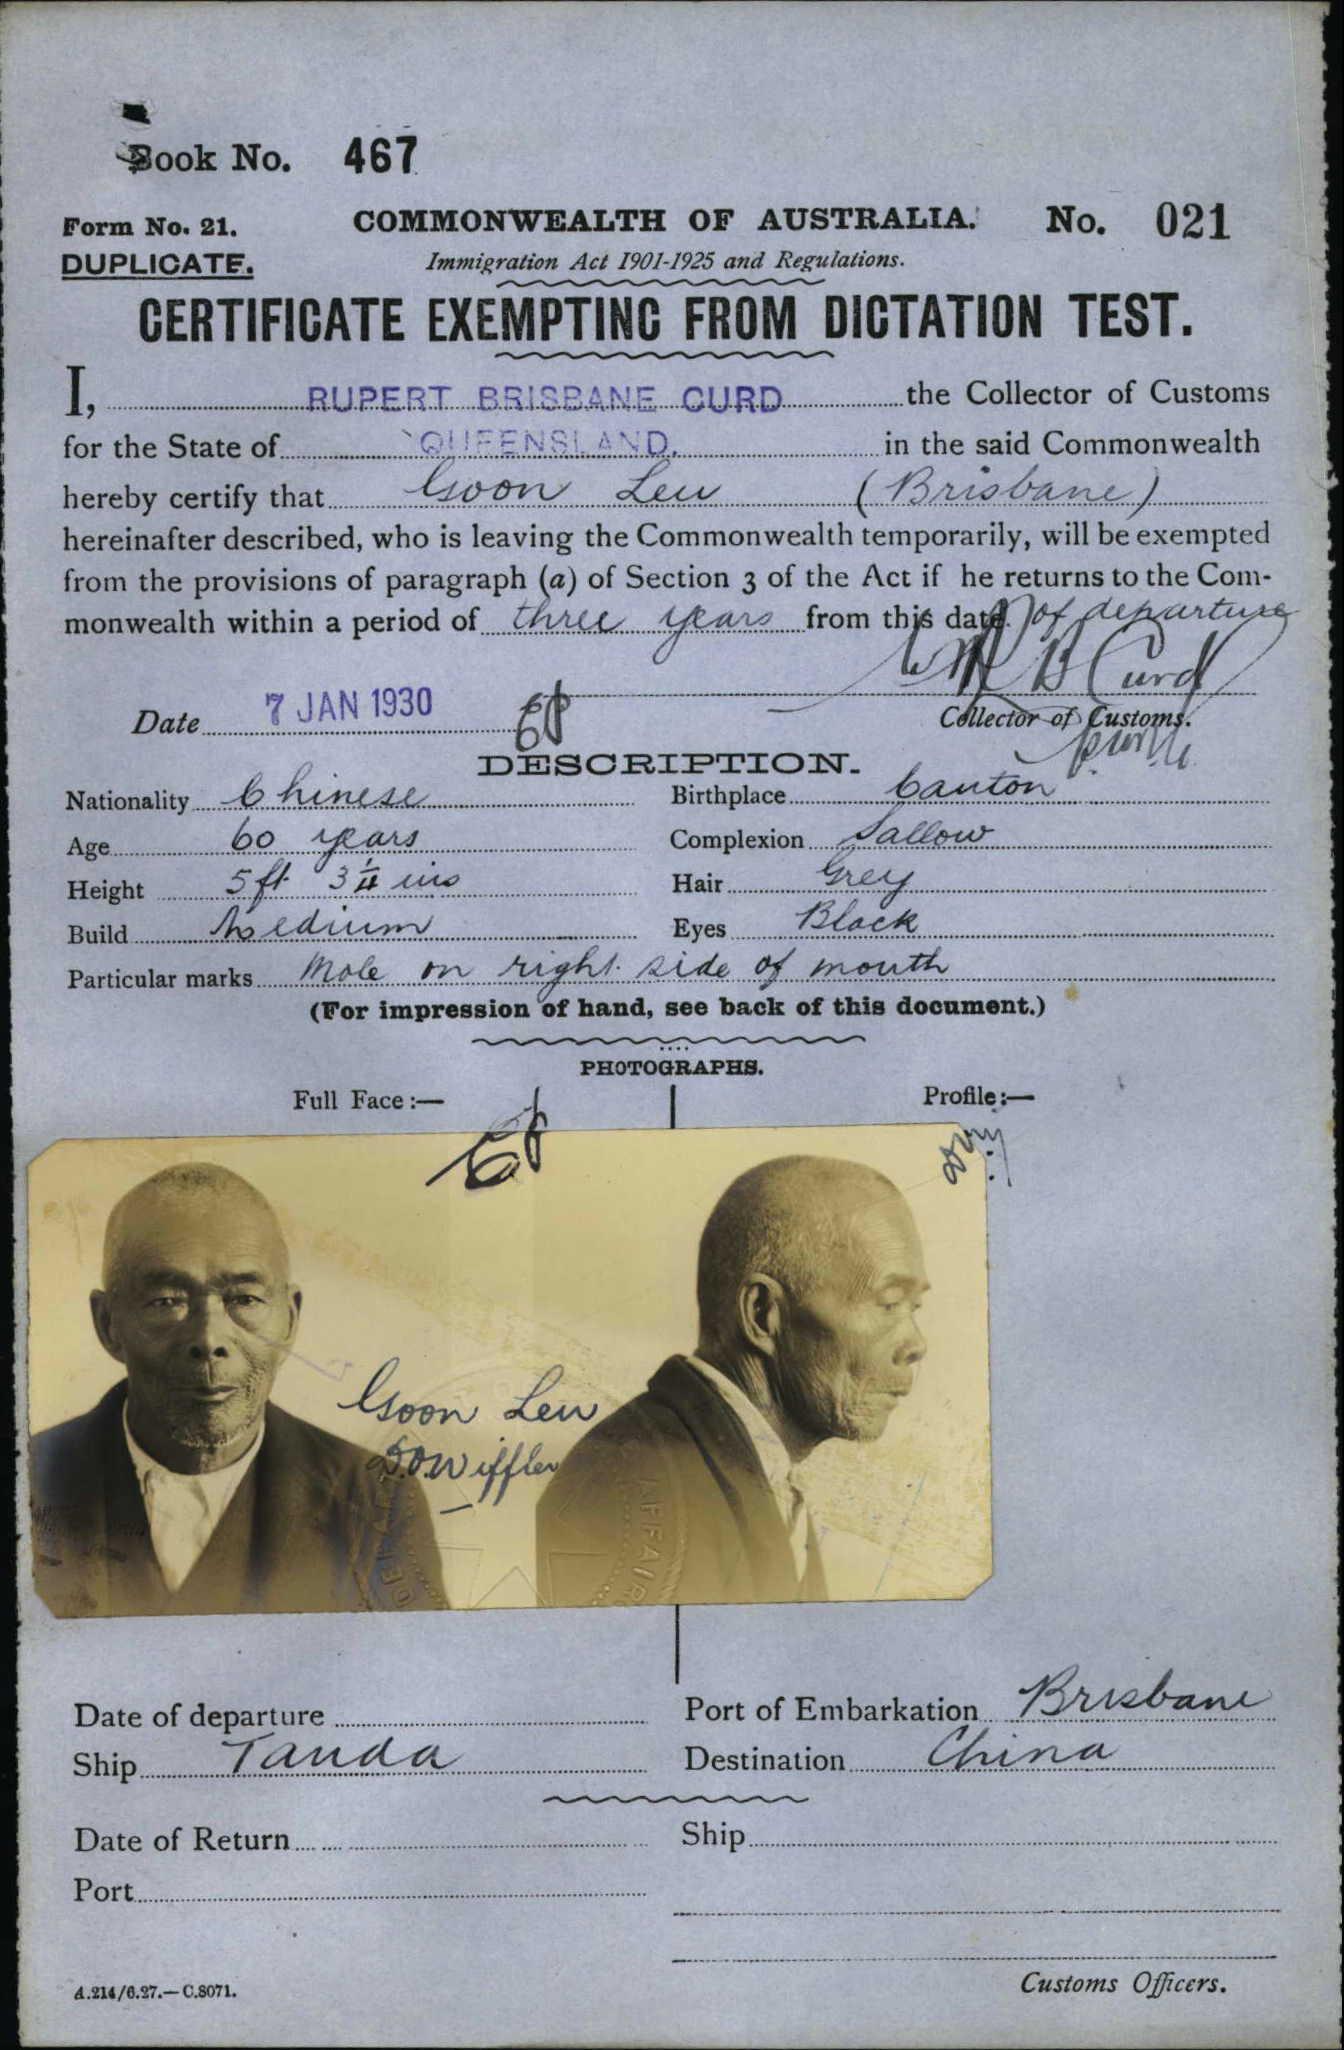 Book No. 467
Form No. 21. COMMONWEALTH OF AUSTRALIA. No. 021
DUPLICATE. Immigration Act 1901-1925 and Regulations.
CERTIFICATE EXEMPTING FROM DICTATION TEST.
I, RUPERT BRISBANE CURD the Collector of Customs
for the State of QUEENSLAND. in the said Commonwealth
hereby certify that Goon Leu (Brisbane)
hereinafter described, who is leaving the Commonwealth temporarily, will be exempted
from the provisions of paragraph (a) of Section 3 of the Act if he returns to the Com-
monwealth within a period of three years from this date of departure
Curd
Date 7 JAN 1930
Collector of Customs.
DESCRIPTION.
Nationality Chinese Birthplace Canton
Age 60 years Complexion Sallow
Height 5ft 3¼ ins Hair Grey
Build Medium Eyes Black
Particular marks Mole on right side of mouth
(For impression of hand, see back of this document.)
PHOTOGRAPHS.
Full Face:— Profile:—
Goon Leu
AFFAIRS
Date of departure Port of Embarkation Brisbane
Ship Tanda Destination China
Date of Return Ship
Port
A.214/6.27.—C.8071. Customs Officers.